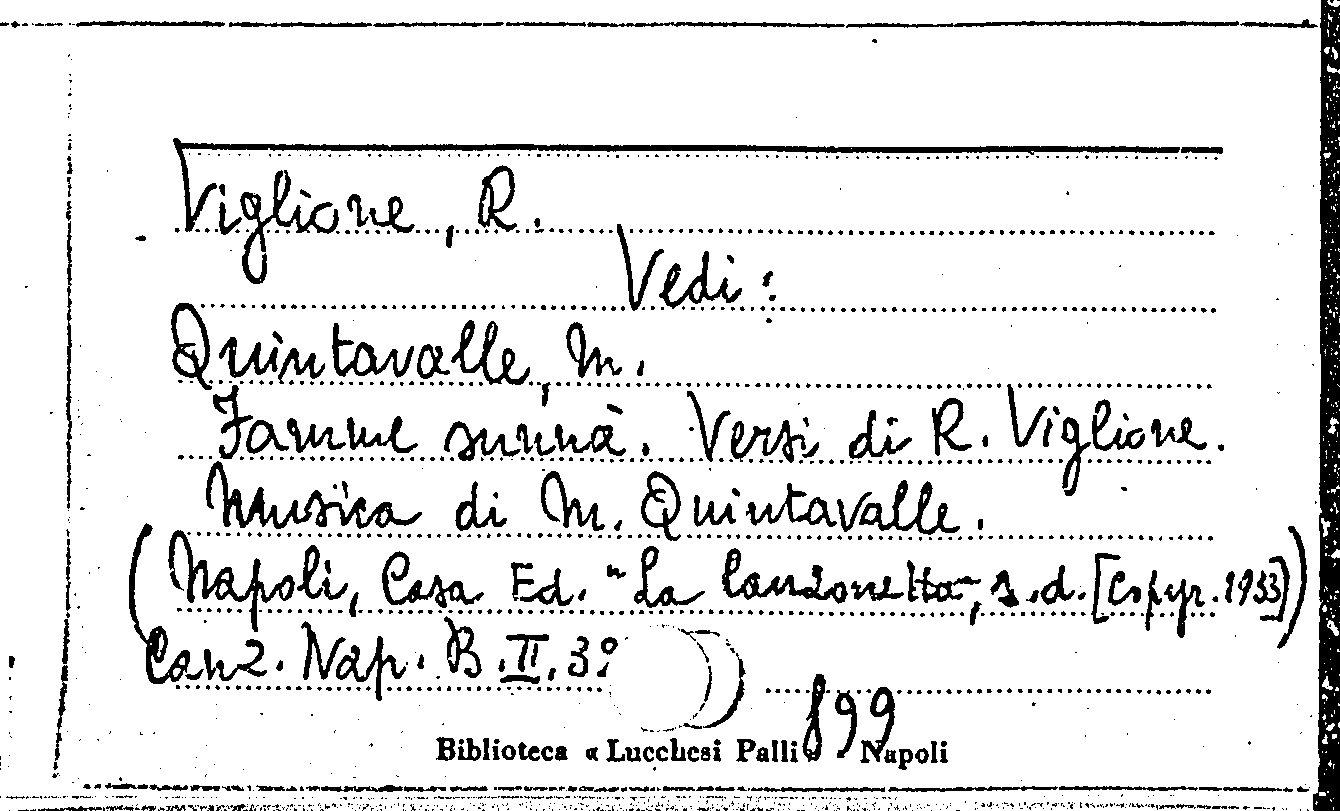 Viglione, R.
Vedi:
Quintavalle, M.
Famme sunnà. Versi di R. Viglione.
Musica di M. Quintavalle.
(Napoli, Casa Ed. "La Canzonetta", s.d. [Copyr. 1933])
Canz. Nap. B.II.3º
899
Biblioteca « Lucchesi Palli » Napoli